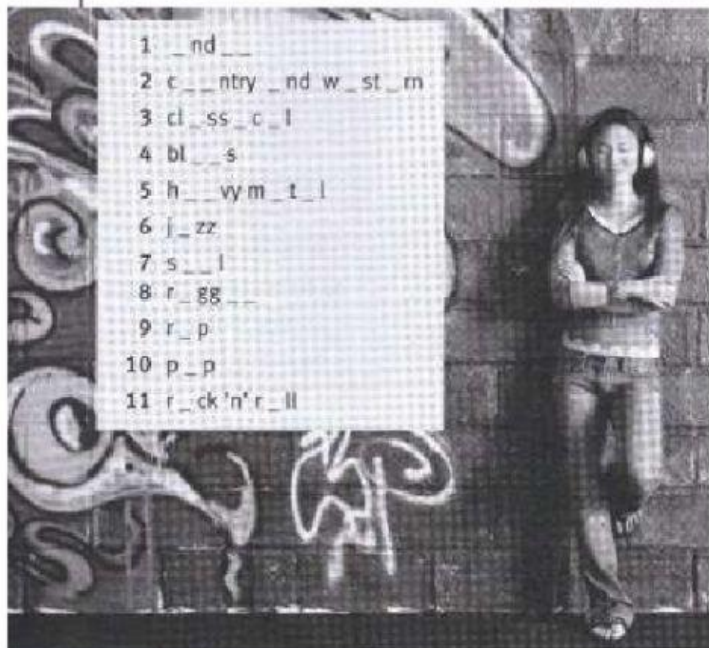 1 _ nd _ _
2 c _ _ ntry _ nd w _ st _ rn
3 cl _ ss _ c _ l
4 bl _ _ s
5 h _ _ vy m _ t _ l
6 j _ zz
7 s _ _ l
8 r _ gg _ _
9 r _ p
10 p _ p
11 r _ ck 'n' r _ ll